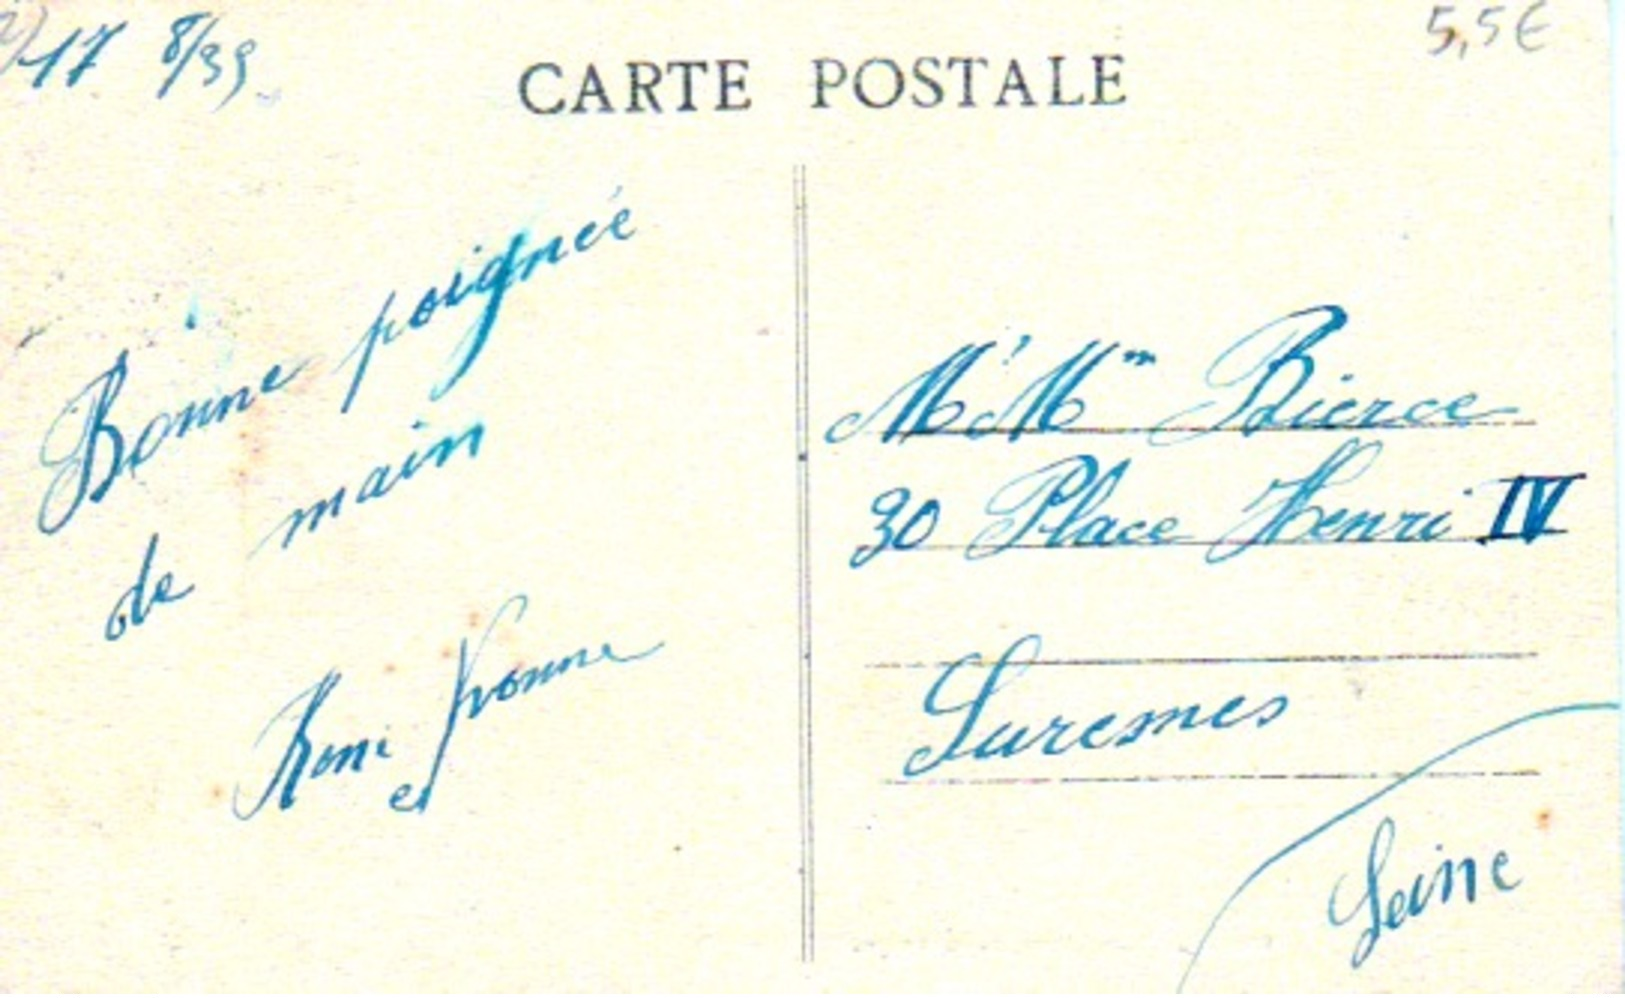 17 8/39
5,5€
CARTE POSTALE
Bonne poignée
de main
René
et Yvonne
Mr Mm Bierce
30 Place Henri IV
Suresnes
Seine